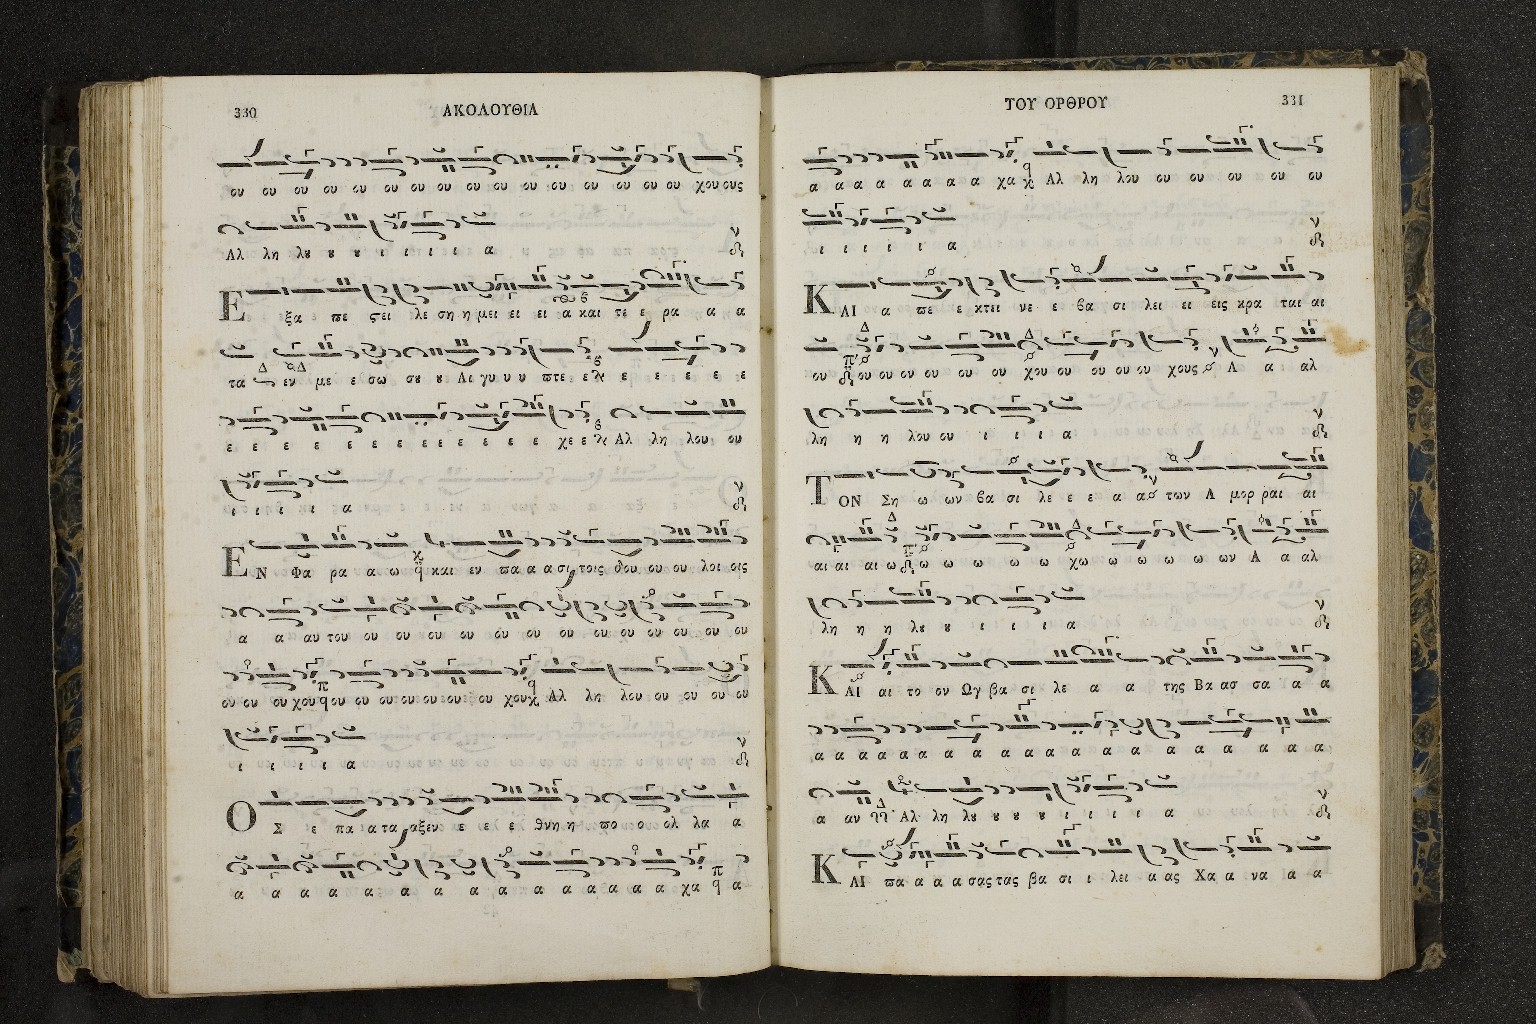 330 ΑΚΟΛΟΥΘΙΑ
ου ου ου ου ου ου ου ου ου ου ου ου ου ου ου ου χουους
Αλ λη λȣ ȣ ȣ ι ι ι ι α
Εξα πε ςει λε ση η μει ει ει α και τε ε ρα α α
τα εν με ε σω σȣ ȣ Αι γυ υ υ πτε ε ε ε ε ε ε ε
ε ε ε ε ε ε ε ε ε ε ε ε χε ε Αλ λη λου ου
ι ι ι ι α
ΕΝ Φα ρα α ω και εν πα α α σι τοις δου ου ου λοι οις
α α αυ του ου ου ου ου ου ου ου ου ου ου ου ου ου
ου ου ου χου ου ου ου ου ου ου ου ου χου Αλ λη λου ου ου ου ου
ι ι ι ι α
ΟΣ ε πα α τα αξεν ε ε ε θνη η πο ο ολ λα α
α α α α α α α α α α α α α α α χα α
ΤΟΥ ΟΡΘΡΟΥ 331
α α α α α α α α χα Αλ λη λου ου ου ου ου ου
ι ι ι ι ι α
ΚΑΙ α πε ε κτει νε ε βα σι λει ει εις κρα ται αι
ου ου ου ου ου ου ου χου ου ου ου ου χους Α α αλ
λη η η λου ου ι ι ι α
ΤΟΝ Ση ω ων βα σι λε ε ε α α των Α μορ ραι αι
αι αι αι ω ω ω ω ω ω χω ω ω ω ω ων Α α αλ
λη η η λȣ ȣ ι ι ι α
ΚΑΙ αι το ον Ωγ βα σι λε α α της Βα ασ σα α α
α α α α α α α α α α α α α α α α α α α α
α αν Αλ λη λȣ ȣ ȣ ȣ ι ι ι ι α
ΚΑΙ πα α α α σας τας βα σι ι λει α ας Χα α να α α